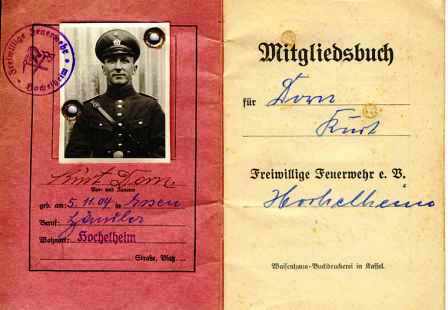 Freiwillige Feuerwehr
Hochelheim
Kurt Dorn
Vor- und Zuname
geb. am: 5.11.04 in Essen
Beruf: Händler
Wohnort: Hochelheim
Straße, Platz
Mitgliedsbuch
für Dorn
Kurt
Freiwillige Feuerwehr e. V.
Hochelheim
Waisenhaus-Buchdruckerei in Kassel.